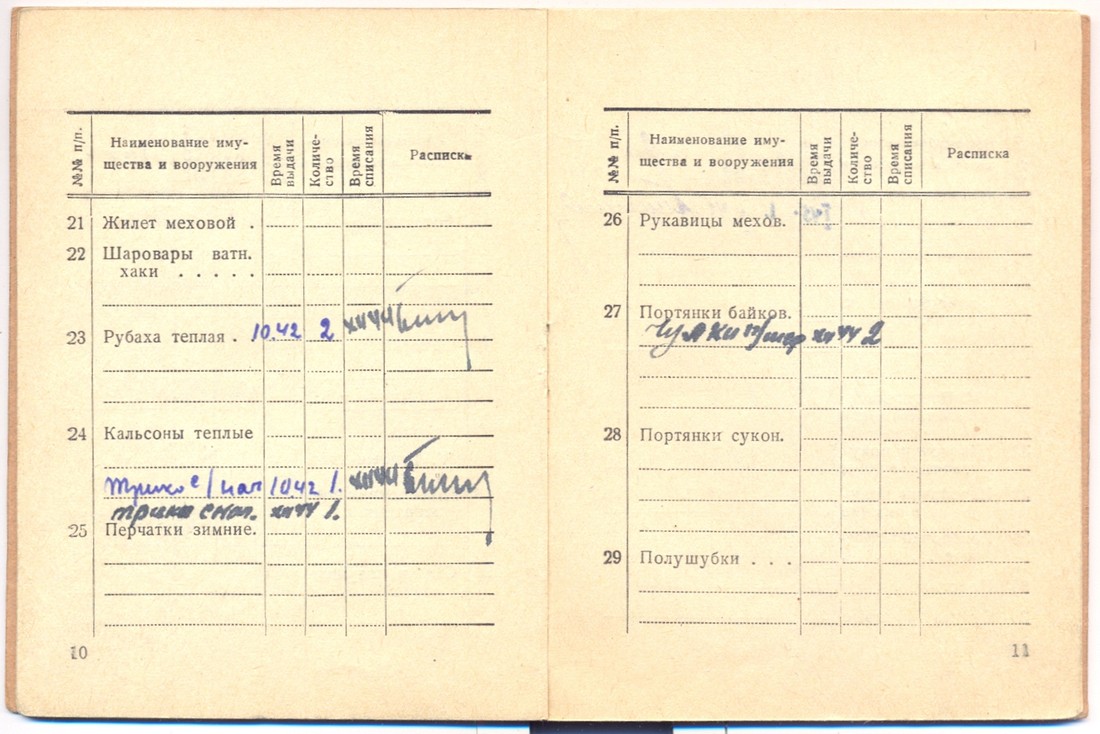 №№ п/п.
Наименование иму-
щества и вооружения
Время
выдачи
Количе-
ство
Время
списания
Расписка
21 Жилет меховой .
22 Шаровары ватн.
хаки . . . . .
23 Рубаха теплая . 10.42 2 XII 44
24 Кальсоны теплые
трико 10.42 1. XII 44
трико XII 44 1.
25 Перчатки зимние.
10
№№ п/п.
Наименование иму-
щества и вооружения
Время
выдачи
Количе-
ство
Время
списания
Расписка
26 Рукавицы мехов.
27 Портянки байков.
Чулки XII 44 2
28 Портянки сукон.
29 Полушубки . . .
11